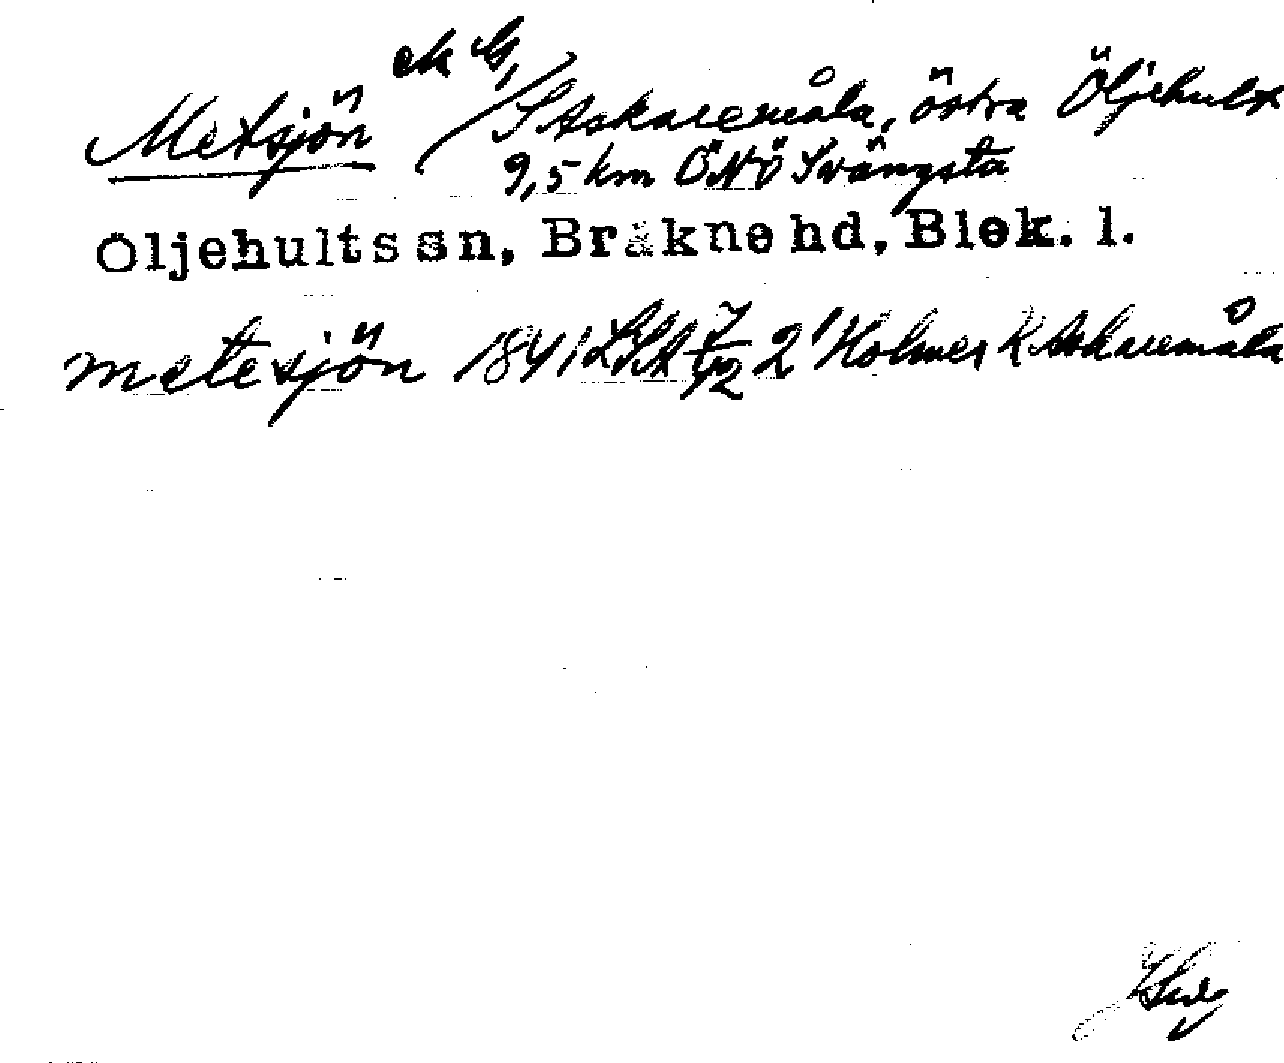 Metsjön S Askaremåla, östra Öljehult
9,5 km ÖNÖ Svängsta
Öljehults sn, Bräkne hd, Blek. l.
metesjön 1841 LSA 2 Holmer K Askaremåla